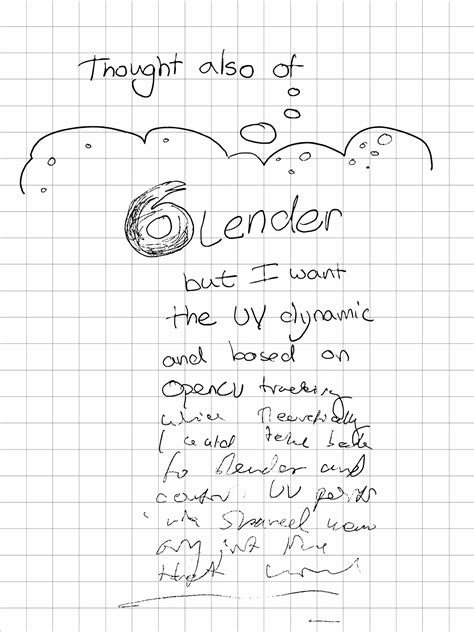 Thought also of
Blender
but I want
the UV dynamic
and based on
OpenCV tracking
which theoretically
I could take back
to Blender and
control UV points
via shared